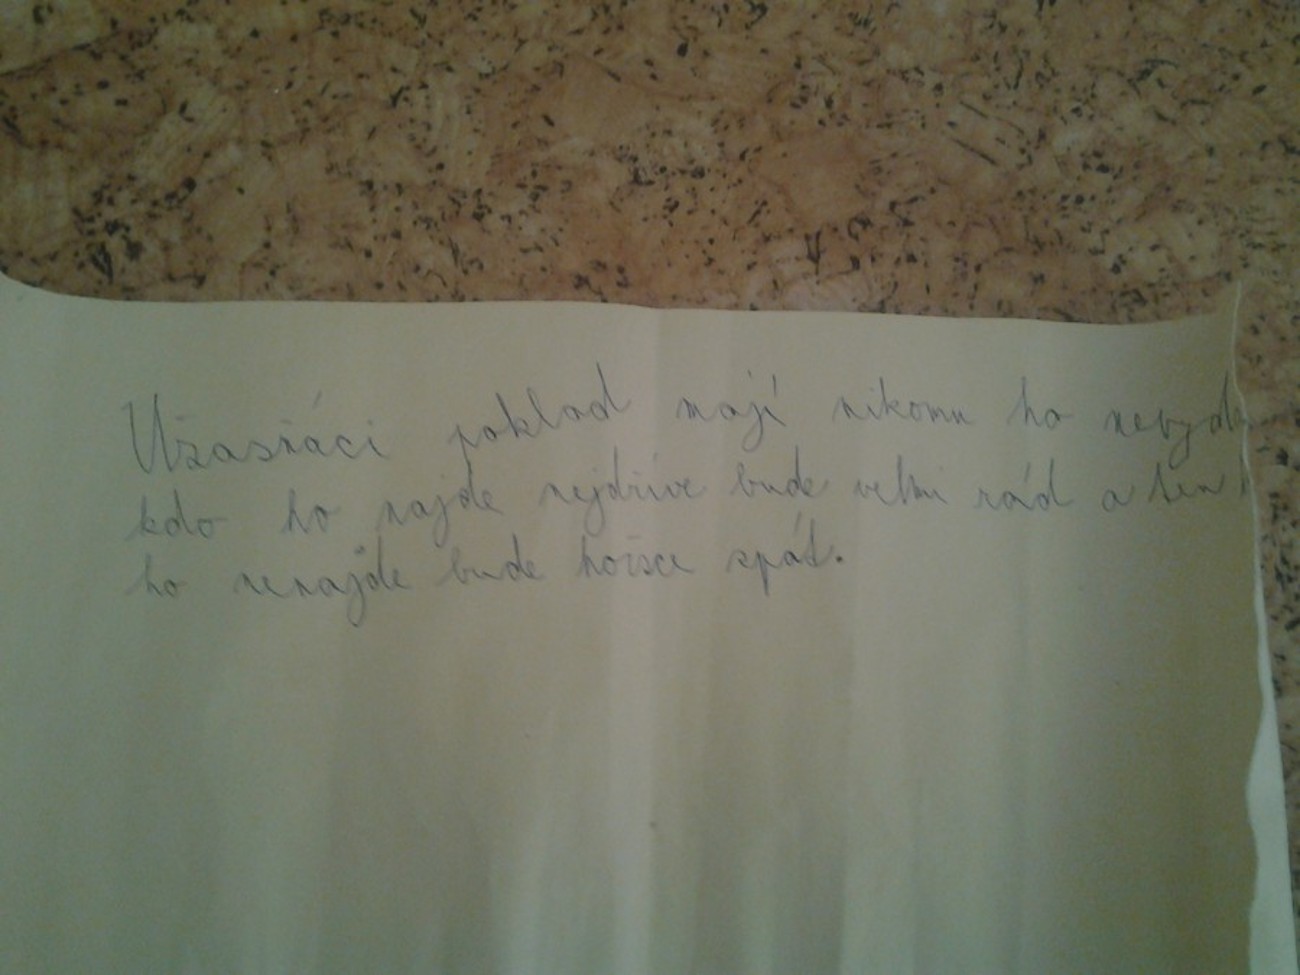 Užasňáci poklad mají nikomu ho nevyd
kdo ho najde nejdříve bude velmi rád a ten
ho nenajde bude hořsce spát.